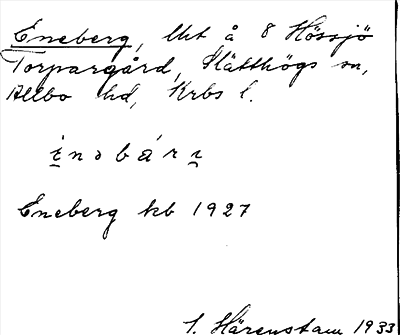 Eneberg, lht å 8 Hössjö
Torpargård, Slätthögs sn,
Allbo hd, Krbs l.
Eneberg kb 1927
S. Härenstam 1933